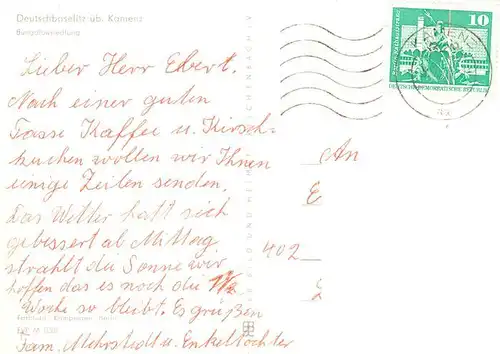 Deutschbaselitz üb. Kamenz
Bungalowsiedlung
Lieber Herr Ebert.
Nach einer guten
Tasse Kaffee u. Kirsch-
kuchen wollten wir Ihnen
einige Zeilen senden.
Das Wetter hatt sich
gebessert ab Mittag
strahlt die Sonne wir
hoffen das es noch die 1/2
Woche so bleibt. Es grüßen
Fam. Mehrstedt u. Enkeltochter
An
E
402
10
DEUTSCHE DEMOKRATISCHE REPUBLIK
BILD UND HEIM REICHENBACH I. V.